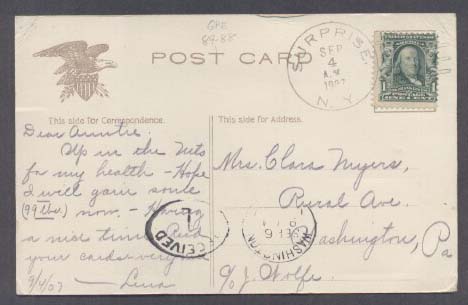 GPE
84-88
POST CARD
SURPRISE
SEP
4
A.M.
1907
N.Y.
1
This side for Correspondence.
This side for Address.
Dear Auntie.
Up in the Mts
for my health - Hope
I will gain some
(99 lbs.) now - Having
a nice time. Recd
your cards very
9/4/07 - Lena
RECEIVED
1
Mrs. Clara Myers,
Rural Ave.
Washington, Pa
c/o J. Wolfe.
WASHINGTON
SEP 6